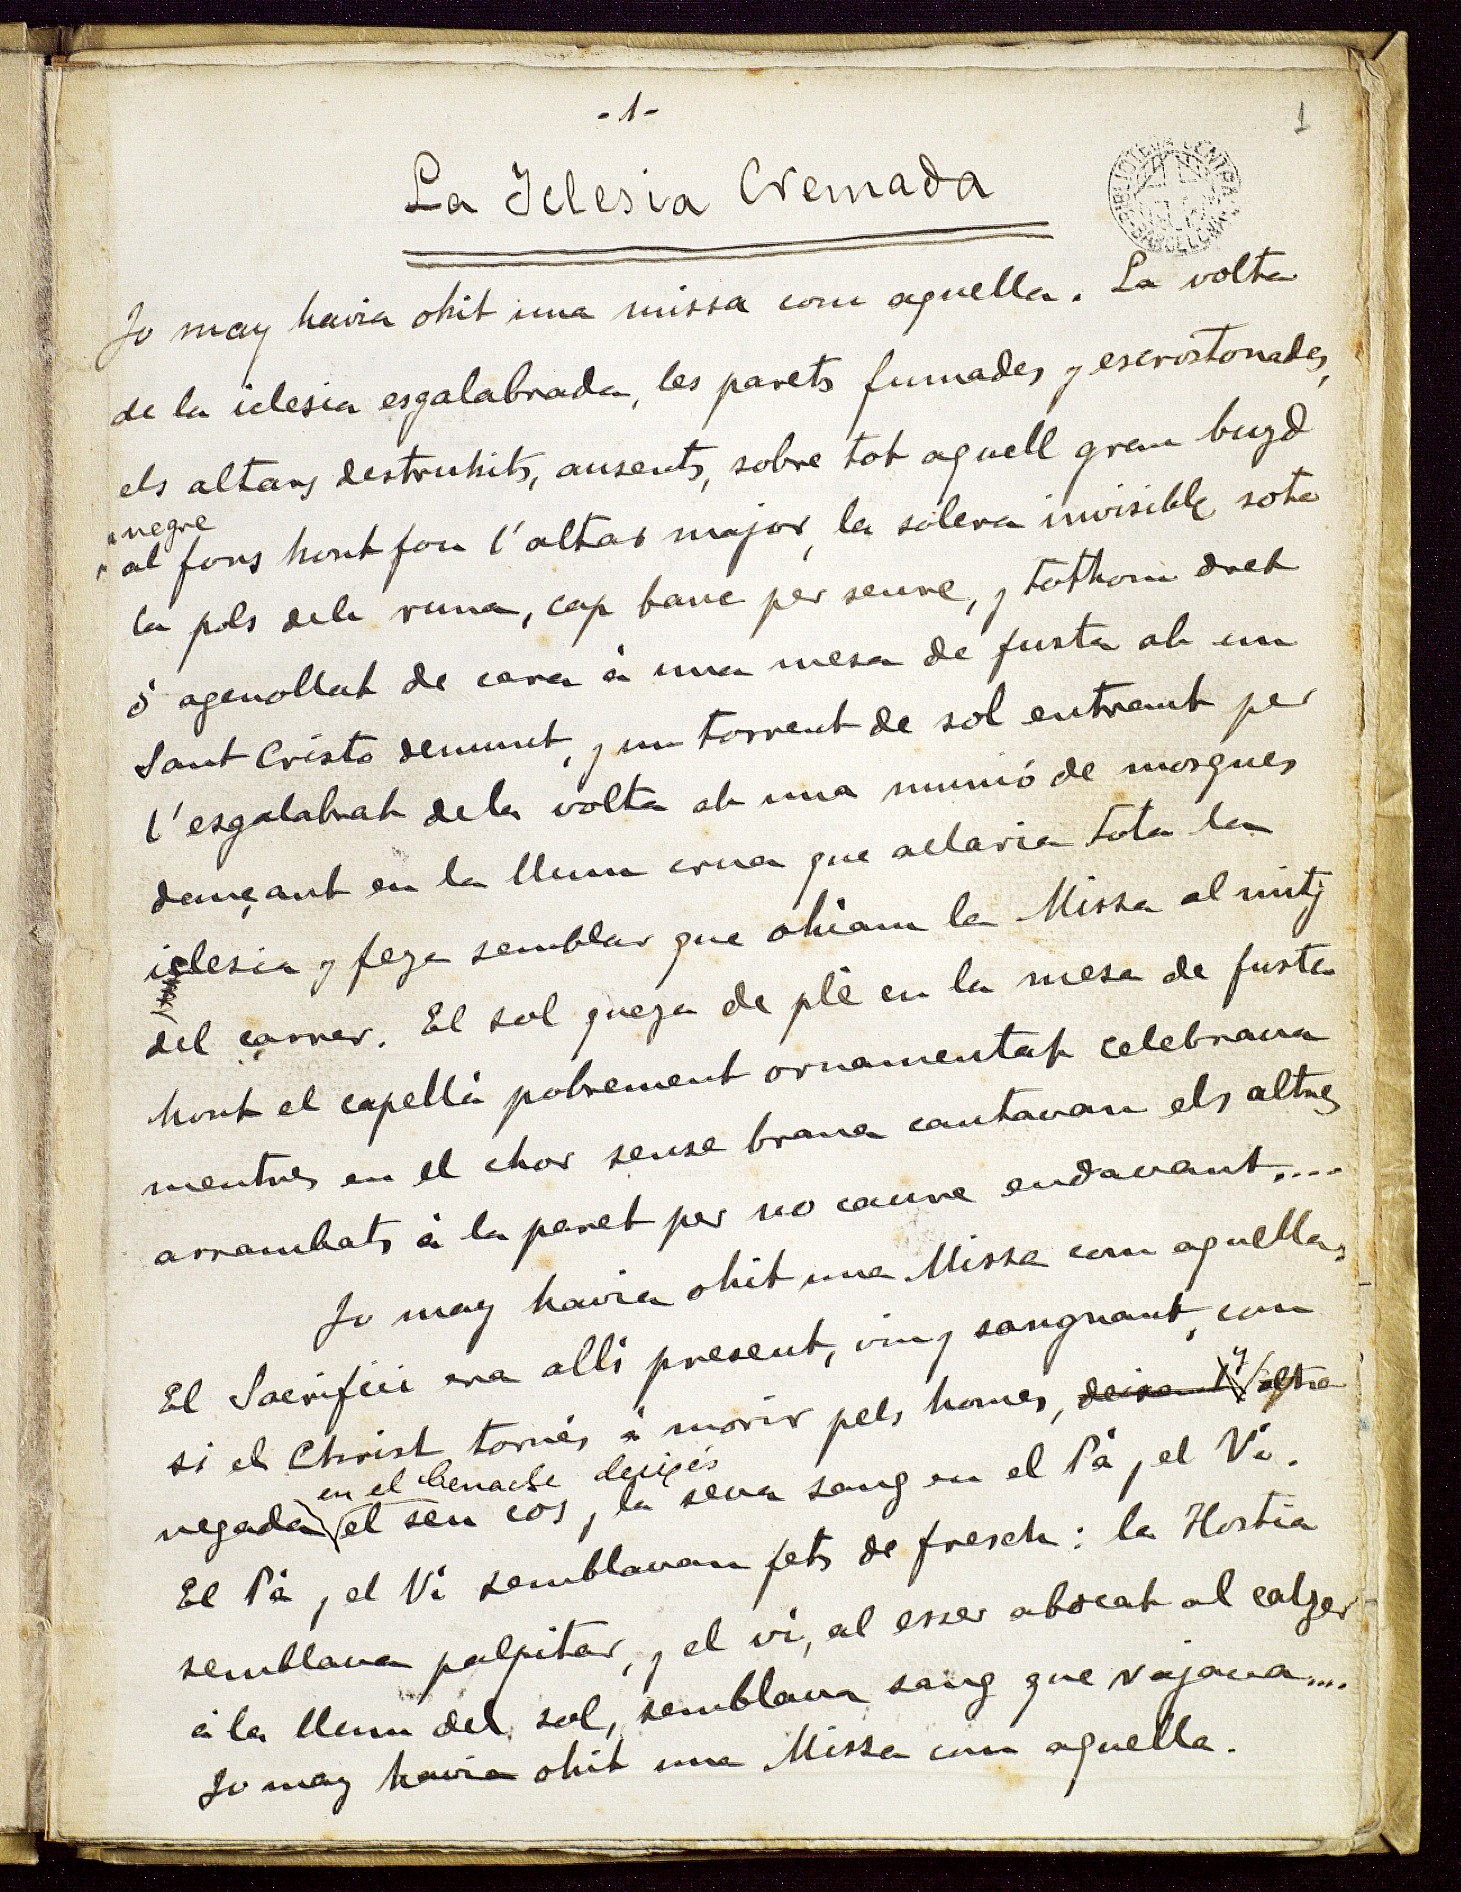 - 1 -
1
La Iclesia Cremada
Jo may havia ohit una missa com aquella. La volta
de la iclesia esgalabrada, les parets fumades y escrostonades,
els altars destruhits, ausents, sobre tot aquell gran buyd
negre
al fons hont fou l'altar major, la solera invisible sota
la pols dela runa, cap banc per seure, y tothom dret
ó agenollat de cara á una mesa de fusta ab un
Sant Cristo demunt, y un torrent de sol entrant per
l'esgalabrat dela volta ab una munió de mosques
dançant en la llum crua que aclaria tota la
iclesia y feya semblar que ohiam la Missa al mitj
del carrer. El sol queya de plé en la mesa de fusta
hont el capellá pobrement ornamentat celebrava
mentres en el chor sense brana cantavan els altres
arrambats á la paret per no caure endavant....
Jo may havia ohit una Missa com aquella,
El Sacrifici era allí present, viu y sangnant, com
si el Christ tornés á morir pels homes, deixant y altra
en el Cenacle deixés
vegada el seu cos y la seva sang en el Pá y el Vi.
El Pá y el Vi semblavan fets de fresch: la Hostia
semblava palpitar, y el vi, al esser abocat al calzer
á la llum del sol, semblava sang que rajava....
Jo may havia ohit una Missa com aquella.